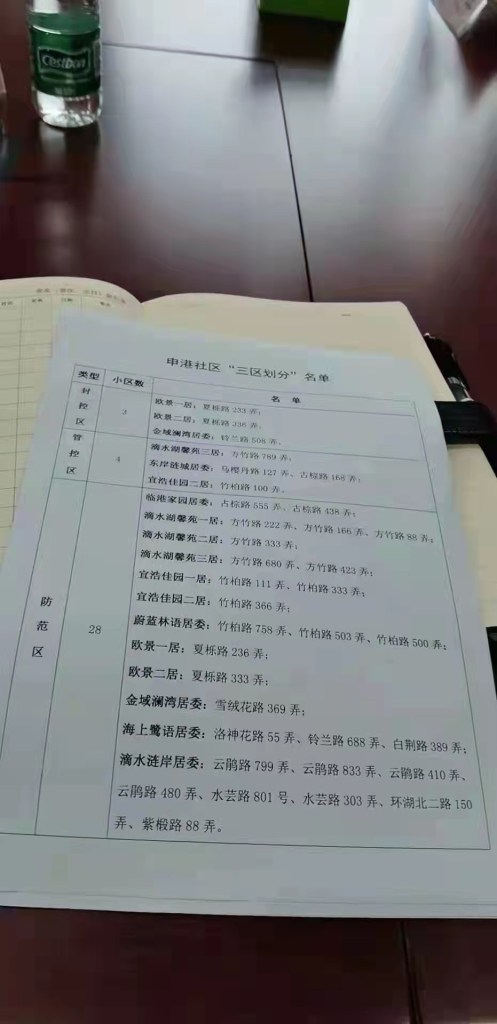 Cestbon
申港社区“三区划分”名单
类型 小区数 名 单
封控区 3 欧景一居：夏栎路 233 弄；
欧景二居：夏栎路 336 弄；
金域澜湾居委：铃兰路 508 弄。
管控区 4 滴水湖馨苑三居：方竹路 789 弄；
东岸涟城居委：乌樱丹路 127 弄、古棕路 168 弄；
宜浩佳园二居：竹柏路 100 弄。
防范区 28 临港家园居委：古棕路 555 弄、古棕路 438 弄；
滴水湖馨苑一居：方竹路 222 弄、方竹路 166 弄、方竹路 88 弄；
滴水湖馨苑二居：方竹路 333 弄；
滴水湖馨苑三居：方竹路 680 弄、方竹路 423 弄；
宜浩佳园一居：竹柏路 111 弄、竹柏路 333 弄；
宜浩佳园二居：竹柏路 366 弄；
蔚蓝林语居委：竹柏路 758 弄、竹柏路 503 弄、竹柏路 500 弄；
欧景一居：夏栎路 236 弄；
欧景二居：夏栎路 333 弄；
金域澜湾居委：雪绒花路 369 弄；
海上鹭语居委：洛神花路 55 弄、铃兰路 688 弄、白荆路 389 弄；
滴水涟岸居委：云鹃路 799 弄、云鹃路 833 弄、云鹃路 410 弄、
云鹃路 480 弄、水芸路 801 号、水芸路 303 弄、环湖北二路 150
弄、紫椴路 88 弄。